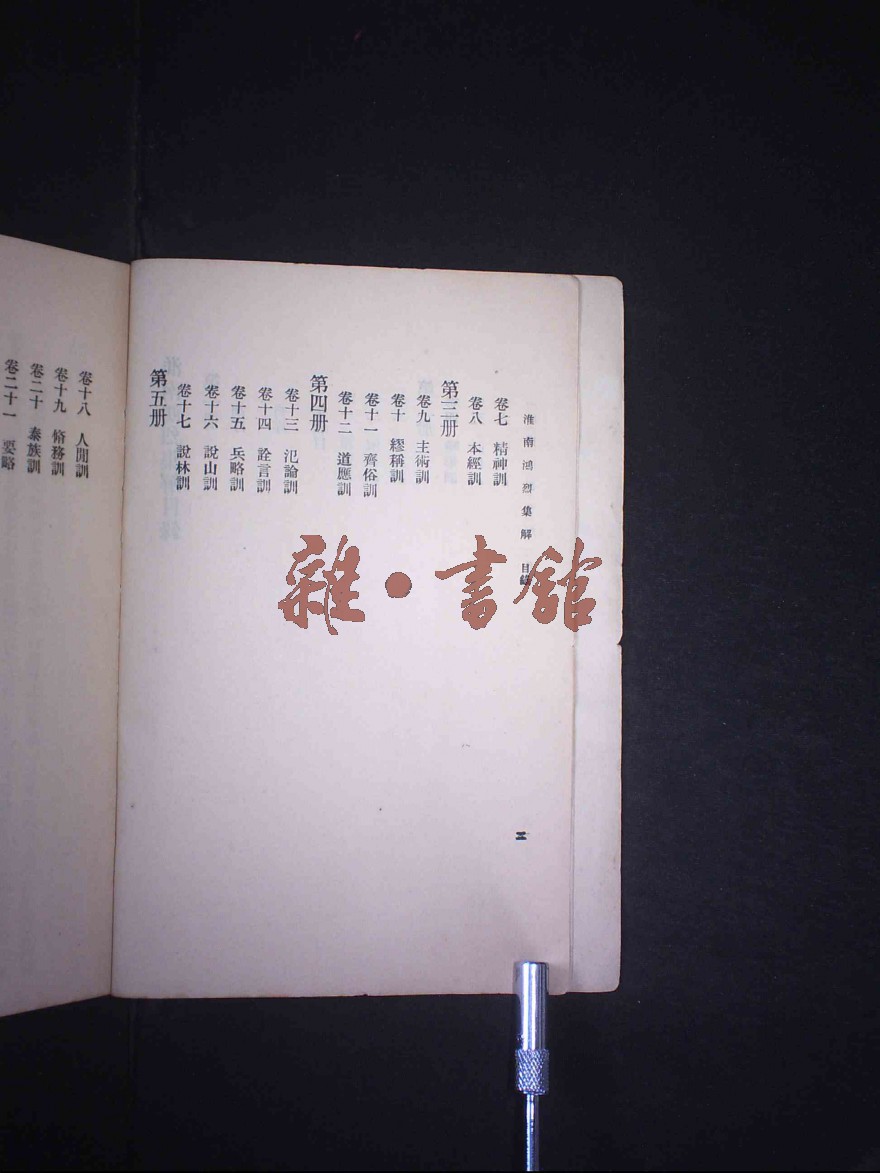 淮南鴻烈集解 目錄
卷七 精神訓
卷八 本經訓
第三册
卷九 主術訓
卷十 繆稱訓
卷十一 齊俗訓
卷十二 道應訓
第四册
卷十三 氾論訓
卷十四 詮言訓
卷十五 兵略訓
卷十六 說山訓
卷十七 說林訓
第五册
卷十八 人閒訓
卷十九 脩務訓
卷二十 泰族訓
卷二十一 要略
二
雜·書館